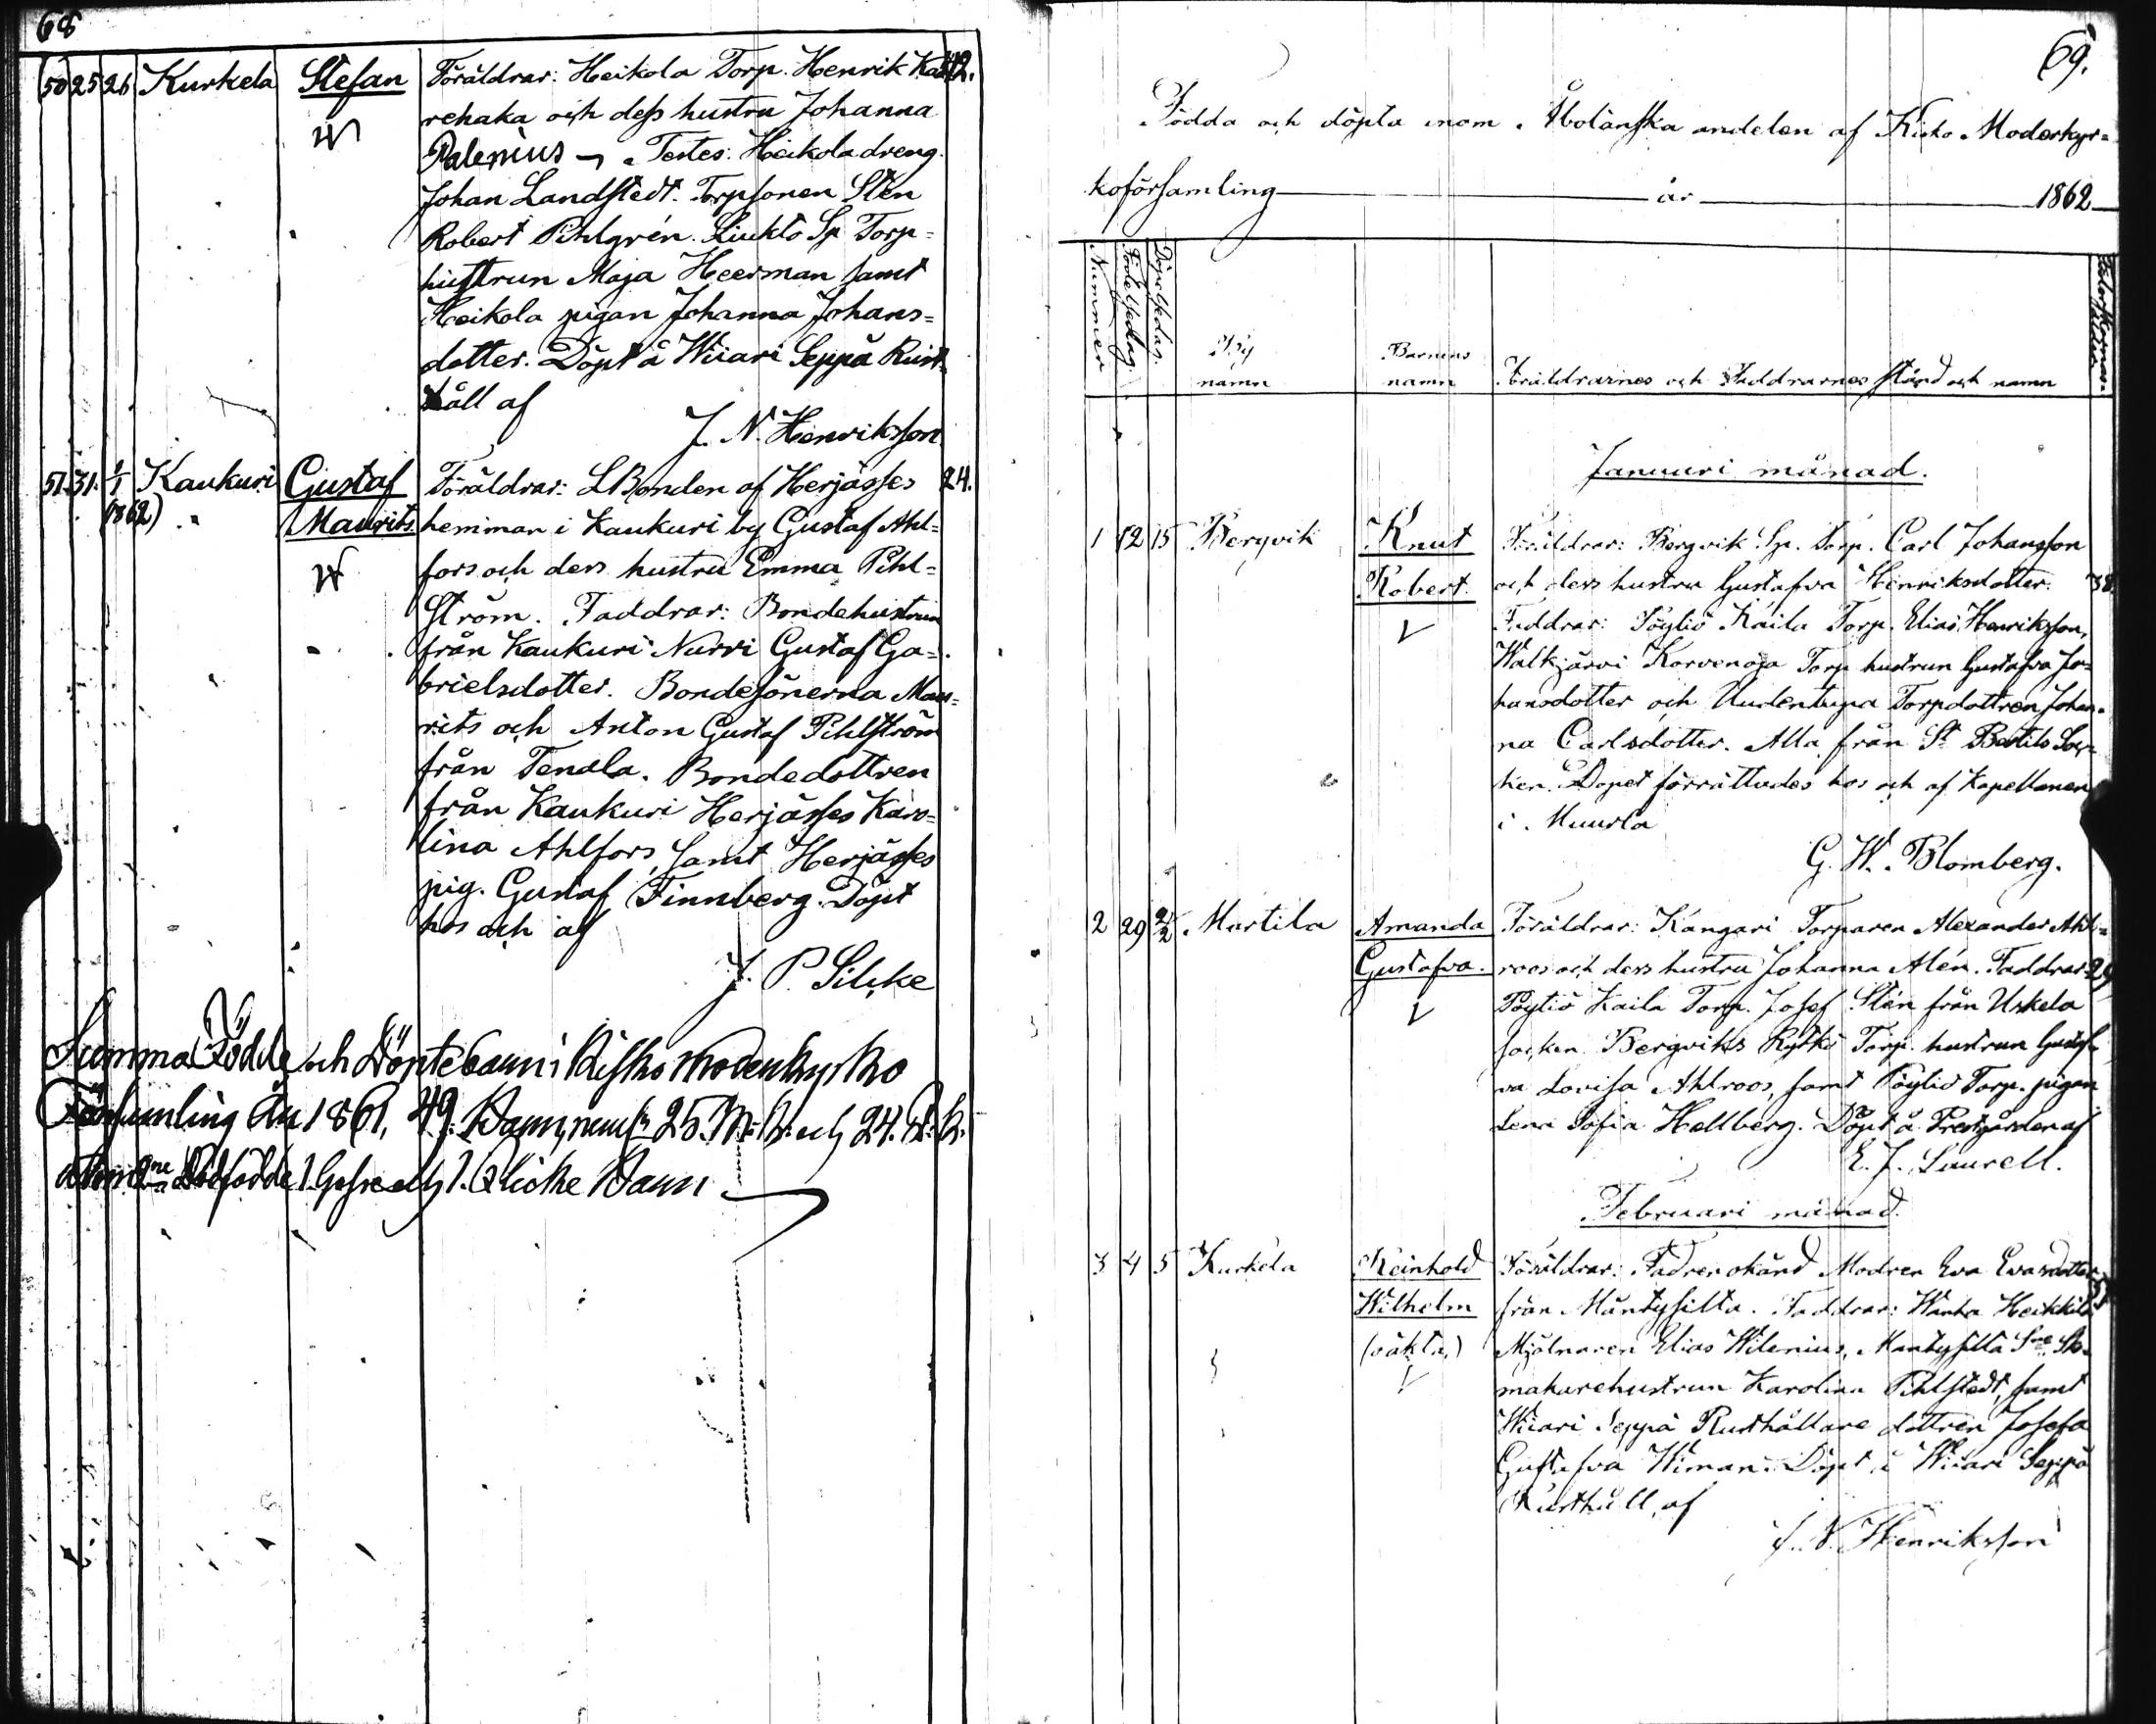 68
50 25 26 Kurkela Stefan Föräldrar: Heikola Torp. Henrik Kar 42.
rehaka och dess hustru Johanna
Palenius Testes: Heikola dreng.
Johan Landstedt. Torpsonen Sten
Robert Pihlgrén. Liukto Sp Torp=
hustrun Maja Heerman samt
Heikola pigan Johanna Johans=
dotter. Döpt å Wiiari Seppä Rust=
håll af
J. N. Henriksson
51. 31. 1/1 Kaukuri Gustaf Föräldrar: LBonden af Herjässes 24.
(1862) " Maurits. hemman i Kaukuri by Gustaf Ahl=
fors och dess hustru Emma Pihl=
ström. Faddrar: Bondehustrun
från Kaukuri Nurri Gustaf Ga=
brielsdotter. Bondesönerna Mau=
rits och Anton Gustaf Pihlström
från Tenala. Bondedottren
från Kaukuri Herjässes Karo=
lina Ahlfors, samt Herjässes
pig. Gustaf Finnberg. Döpt
hos och af
J. P. Silcke
Summa Födde och Döpte barn i Kisko Moderkyrko
Församling År 1861, 49. Barn, neml: 25. M: K: och 24. Q: K.
2ne Dödfödde 1. Gosse och 1. Flicke Barn
69.
Födda och döpta inom Åbolänska andelen af Kisko Moderkyr=
koförsamling år 1862
Nummer Födelsedag. Döpelsedag. By namn Barnens namn Föräldrarnes och Faddrarnes stånd och namn
Januari månad.
1 12 15 Bergvik Knut Föräldrar: Bergvik Sp. Torp. Carl Johansson
Robert. och dess hustru Gustafva Henriksdotter. 38.
Faddrar: Pöyliö Kaila Torp. Elias Henriksson,
Walkjärvi Korvenoja Torp hustrun Gustafva Jo=
hansdotter och Uudentupa Torpdottren Johan=
na Carlsdotter. Alla från St Bertils Soc=
ken. Dopet förrättades hos och af Kapellanen
i Muurla
G. W. Blomberg.
2 29 2/2 Martila Amanda Föräldrar: Kangari Torparen Alexander Ahl=
Gustafva. roos och dess hustru Johanna Alén. Faddrar: 29
Pöyliö Kaila Torp. Josef Stén från Uskela
socken Bergviks Rytkö Torp. hustrun Gustaf=
va Lovisa Ahlroos, samt Pöyliö Torp. pigan
Lena Sofia Hellberg. Döpt å Prestgården af
E. J. Laurell.
Februari månad.
3 4 5 Kurkela Reinhold Föräldrar: Fadren okänd Modren Eva Evasdotter
Wilhelm från Mäntysilta. Faddrar: Wanha Heikkilä
(oäkta) Mjölnaren Elias Wilenius, Mantysilta Sne Sko=
makarehustrun Karolina Pihlstedt, samt
Wiiari Seppä Rusthållare dottren Josefa
Gustafva Wiman. Döpt å Wiiari Seppä
Rusthåll, af
J. N. Henriksson